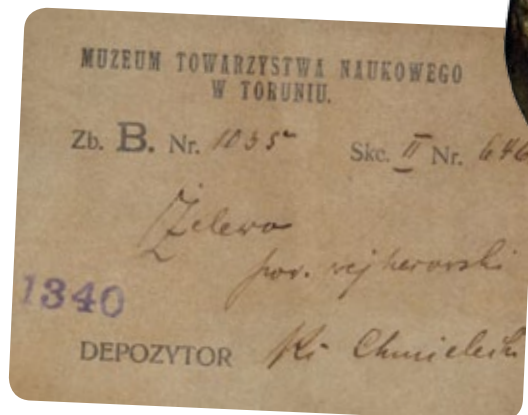 MUZEUM TOWARZYSTWA NAUKOWEGO
W TORUNIU.
Zb. B. Nr. 1035 Skc. II Nr. 646
Żelewo
pow. wejherowski
1340
DEPOZYTOR Ks Chmielecki